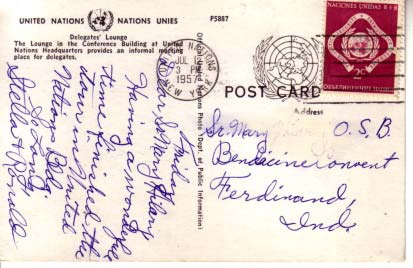 UNITED NATIONS NATIONS UNIES
P5887
Delegates' Lounge
The Lounge in the Conference Building at United
Nations Headquarters provides an informal meeting
place for delegates.
Friday
Dear Sr. Mary
Having a wonderful
time. Finished the
tour in United
Nations Bldg.
So Long,
& Ronald
Official United Nations Photo (Dept. of Public Information)
NATIONS
JUL 12
3 PM
1957
NEW YORK
NACIONES UNIDAS
2¢
POST CARD
Address
Sr. Mary O. S. B.
Convent
Ferdinand,
Ind.